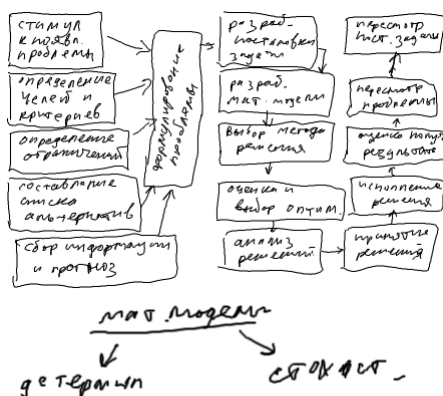 стимул
к появл.
проблемы
определение
целей и
критериев
определение
ограничений
составление
списка
альтернатив
сбор информации
и прогноз
формулирование
проблемы
разраб.
постановки
задачи
разраб.
мат. модели
выбор метода
решения
оценка и
выбор оптим.
анализ
решений
принятие
решения
исполнение
решения
оценка получ.
результата
пересмотр
проблемы
пересмотр
пост. задачи
мат. модели
детермин
стохаст.